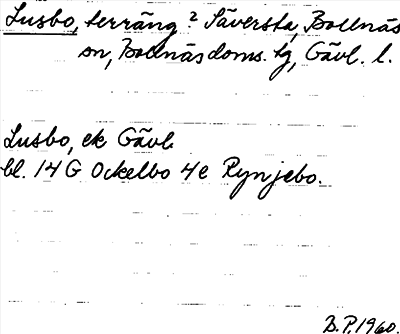 Lusbo, terräng ² Säversta, Bollnäs
sn, Bollnäs doms. tg, Gävl. l.
Lusbo, ek Gävl.
bl. 14 G Ockelbo 4 e Rynjebo.
B.P. 1960.